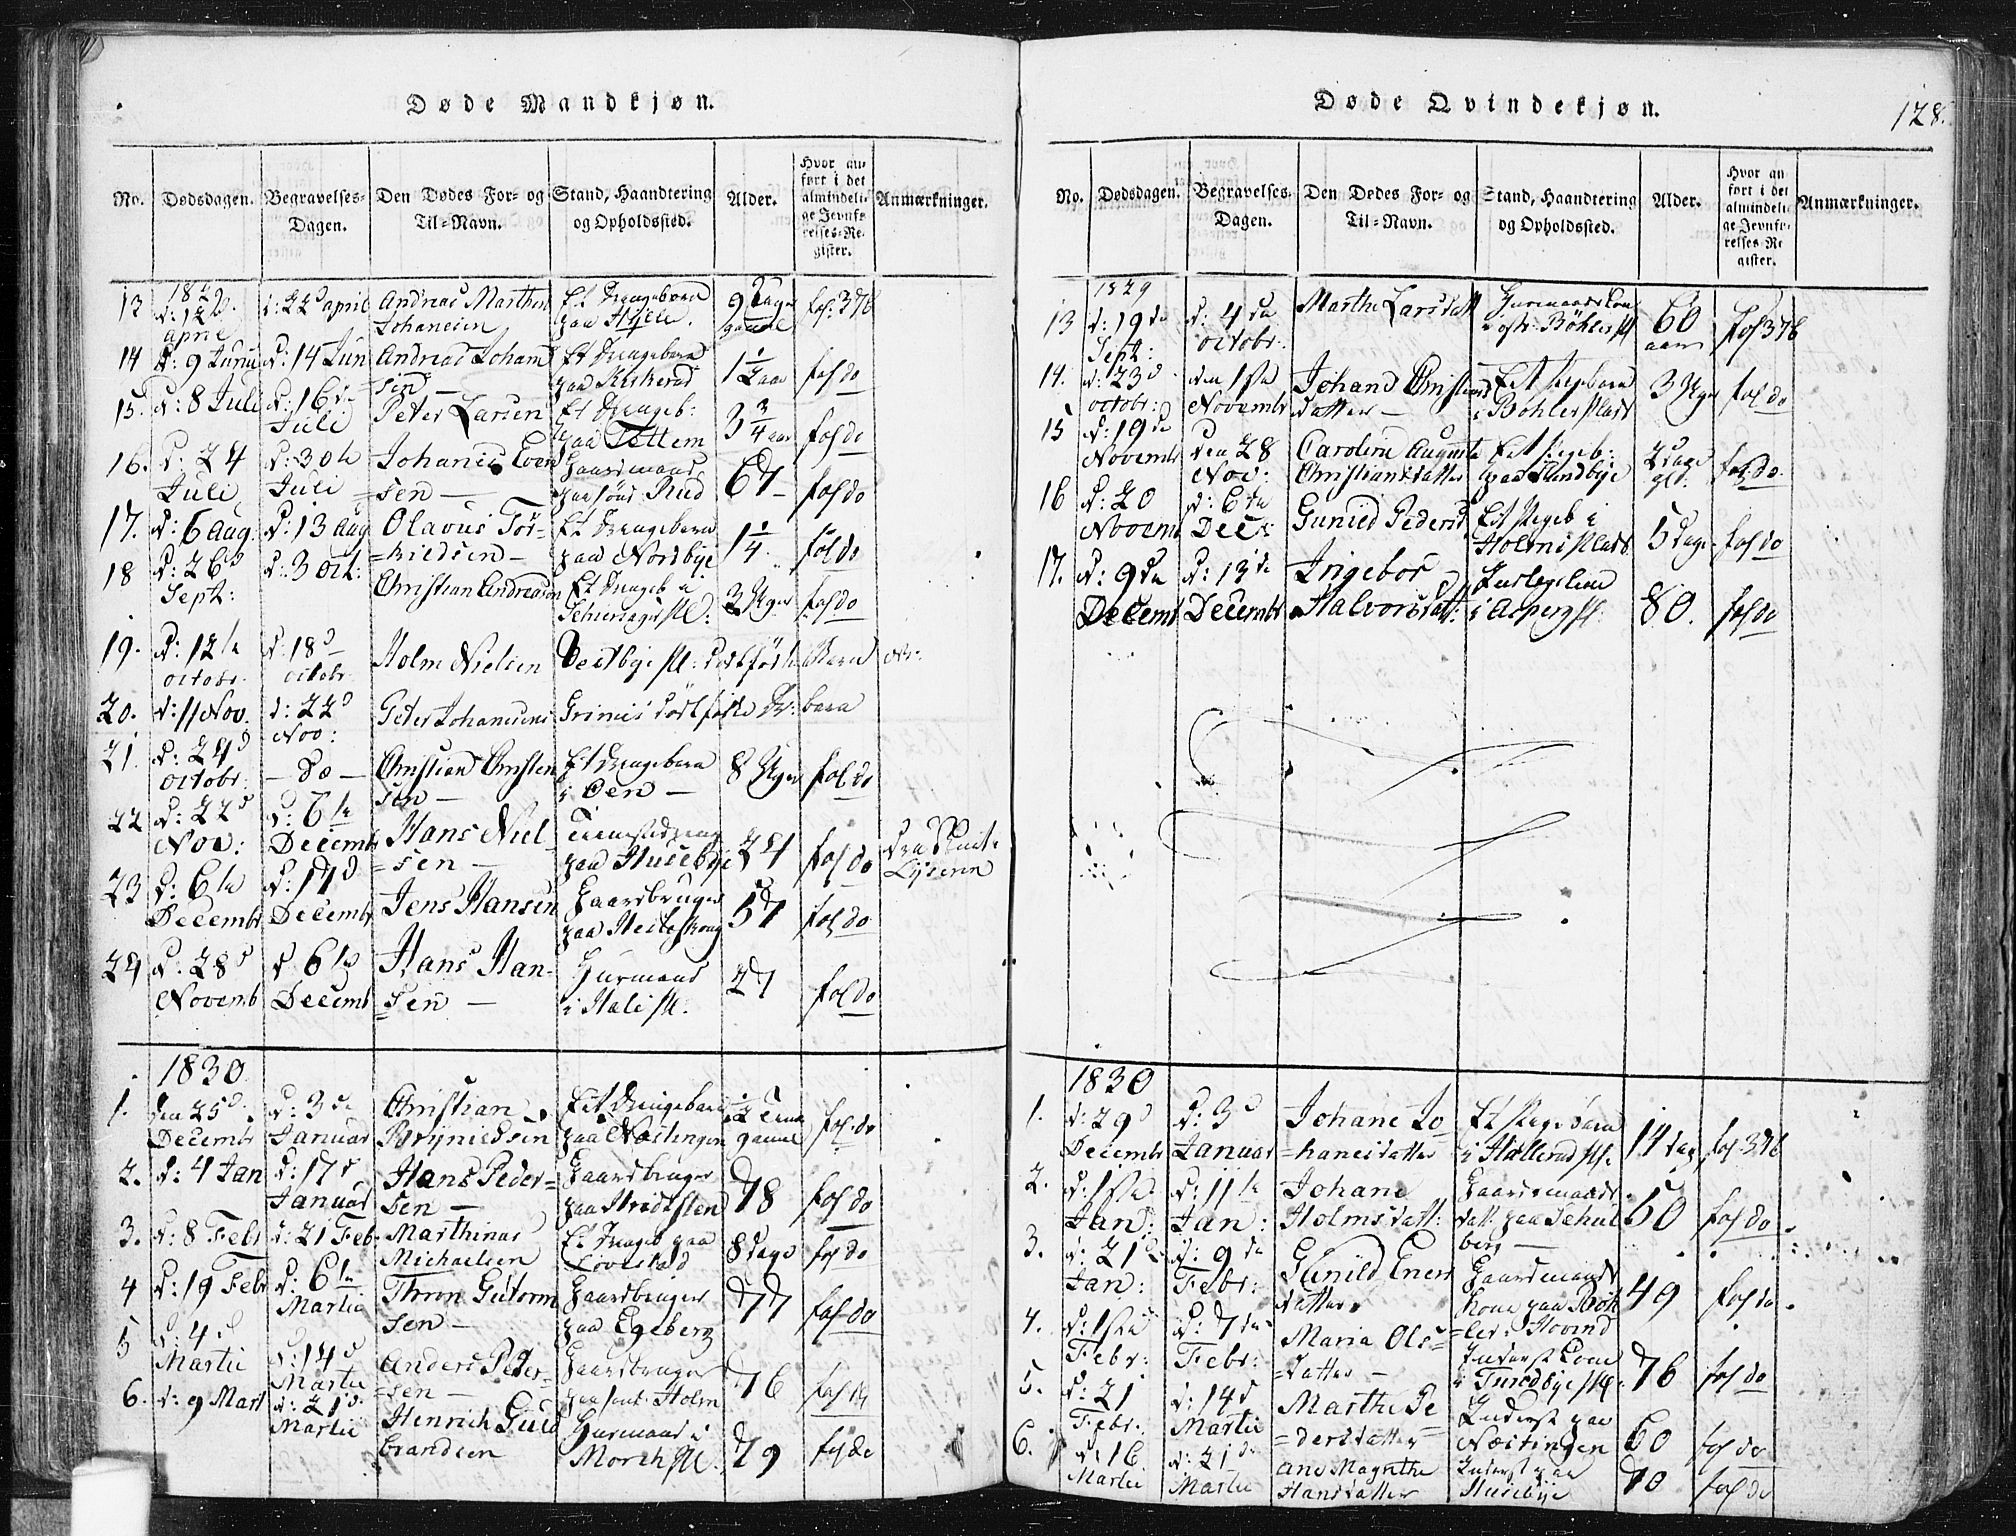 Døde Mandkjøn.
No.
Dødsdagen.
Begravelses-
Dagen.
Den Dødes For- og
Til-Navn.
Stand, Haandtering
og Opholdssted.
Alder.
Hvor an-
ført i det
almindeli-
ge Jevnfø-
relses-Re-
gister.
Anmærkninger.
13
April
d: 22d april
Andreas Marthin
Johanesen
Et Drengebarn
9 Dage
gamle
fol: 376
14 d: 9 Juni d: 14 Jun Andreas Johan
sen —
Et Drengebarn
paa Kirkerud
1 1/2 aar
fol do
15. d: 8 Juli d: 16de
Juli
Peter Larsen
Et Drengeb:
paa Tottem
3 3/4 aar
fol do
16. d: 24
Juli
d: 30te
Juli
Johanis Even
sen —
Gaardmand
paa Rud
67 —
fol do
17. d: 6 Aug: d: 13 Aug Olavus Tor-
=kildsen —
Et Drengebarn
paa Nordbye
1 1/4
fol do
18 d: 26d
Sept:
d: 3 Oct:
Christian Andreasen
Et Drengeb i
3 Uger
fol do
19. d: 12te
octobr.
d: 18d
octobr.
Holm Nielsen
Vestbye pl: dødfødte Barn
20. d: 11 Nov.
d: 22d
Nov:
Peter Johannesens
Grimes dødfødte Dr: barn
21. d: 24d
octobr.
— do —
Christian Christen
sen —
Et Drengebarn
i Oen —
8 Uger
fol do
22 d: 22d
Nov:
d: 6te
Decembr
Hans Niel
=sen —
Tienestedreng
paa Husebye
24
fol do
23 d: 6te
Decembr
d: 17d
Decembr
Jens Hansen
Gaardbruger
paa Heitoskoug
57
fol do
24 d: 28d
Novemb
d: 6te
Decemb
Hans Han-
=sen —
Huusmand
i Hali pl:
27
fol do
1830
1. den 25d.
Decembr
d: 3de
Januar
Christian
Brynildsen
Et Drengebarn
paa Næstingen
1/2 Time
gamel
fol. do
2. d: 4 Jan
d: 17d
Januar
Hans Peder=
sen —
Gaardbruger
78
fol do
3. d: 8 Febr
d: 21 Feb.
Marthinas
Michaelsen
Et Drengeb paa
Lövestad
8 dage
fol do
4 d: 19 Febr
d: 6te
Martii
Thron Gutorm
sen —
Gaardbruger
paa Egeberg
77
fol do
5 d: 4d
Martii
d: 14d
Martii
Anders Peder-
=sen —
Gaardbruger
Holm
76
fol do
6. d: 9 Mart
d: 21d.
Martii
Henrich Guld
brandsen
Huusmand i
Morth pl:
79
fol do
Døde Qvindekjøn.
128.
No.
Dødsdagen.
Begravelses-
Dagen.
Den Dødes For- og
Til-Navn.
Stand, Haandtering
og Opholdssted.
Alder.
Hvor an-
ført i det
almindeli-
ge Jevnfø-
relses-Re-
gister.
Anmærkninger.
1829
13 d: 19de
Sept:
d: 4de
octobr:
Marthe Larsdatt
Huusmands Kone
Böhler pl
60
aar
fol 376
14. d: 23d
octobr:
den 1ste
Novembr
Johane Christians
datter —
Et Pigebarn
i Bohler Plads
3 Uger
fol do
15 d: 19de
Novembr
den 28
Nov:
Caroline Auguste
Christiansdatter
Et Pigeb:
paa Sundbye
2 dage
gl.
fol do.
16 d: 20
Novem
d: 6te
Dec:
Gunild Pedersd
Et Pigeb i
Holms Plads
5 Dage
fol do
17. d: 9de
Decemb
d: 13de
Decembr
Ingebor
Halvorsdatt:
Inderst
i Asperg pl:
80.
fol do
1830
1. d: 29d
Decembr
d: 3d
Januar
Johane Jo
=hanesdatter
Et Pigebarn
i Hallerud pl:
14 dag
fol 376
2. d: 1ste
Jan:
d: 11te
Jan:
Johane
Holmsdatt:
Gaardmands
datt. paa Schul
berg —
50
fol do
3. d: 21d
Jan:
d: 9de
Febr:
Gunild Eners
datter
Gaardmands
kone paa Böh
=ler i Hovind
49
fol do
4. d: 1ste
Febr:
d: 7de
Febr:
Maria Ols=
=datter —
Inderst Kone
i Tuudbye pl:
76
fol do
5. d: 21
Febr:
d: 14d
Martii
Marthe Pe
=dersdatter
Inderst paa
Næstingen
60
fol do
6. d: 16
Martii
d: 21d
Martii
Ane Magrethe
Hansdatter
Inderst paa
Husebye
70
fol do